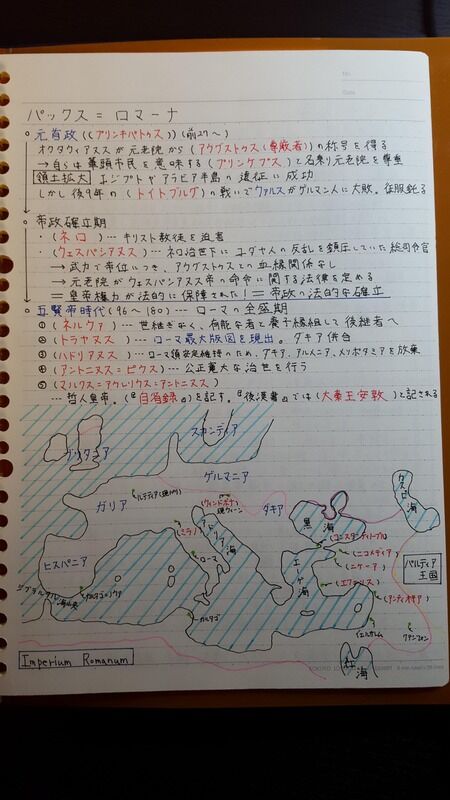 No.
Date
パックス＝ロマーナ
○ 元首政((プリンキパトゥス))(前27〜)
オクタウィアヌスが元老院から(アウグストゥス(尊厳者))の称号を得る
→自らは筆頭市民を意味する(プリンケプス)と名乗り元老院を尊重
領土拡大 エジプトやアラビア半島の遠征に成功
しかし後9年の(トイトブルク)の戦いでウァルスがゲルマン人に大敗。征服鈍る
○ 帝政確立期
・(ネロ)… キリスト教徒を迫害
(ウェスパシアヌス)… ネロ治世下にユダヤ人の反乱を鎮圧していた総司令官
→武力で帝位につき、アウグストゥスとの血縁関係なし
→元老院がウェスパシアヌス帝の命令に関する法律を定める
＝皇帝権力が法的に保障された!＝帝政の法的な確立
○ 五賢帝時代(96〜180)… ローマの全盛期
①(ネルウァ)… 世継ぎなく、有能な者と養子縁組して後継者へ
②(トラヤヌス)… ローマ最大版図を現出。ダキア併合
③(ハドリアヌス)… ローマ領安定維持のため、ダキア、アルメニア、メソポタミアを放棄
④(アントニヌス＝ピウス)… 公正寛大な治世を行う
⑤(マルクス＝アウレリウス＝アントニヌス)
… 哲人皇帝。(『自省録』)を記す。『後漢書』では(大秦王安敦)と記される
スカンディア
ブリタニア
ゲルマニア
ガリア
ルテティア(現パリ)
(ウィンドボナ)
現ウィーン
ダキア
カスピ海
黒海
(ミラノ)
アドリア海
ローマ
(コンスタンティノープル)
(ニコメディア)
(ニケーア)
エーゲ海
(エフェソス)
パルティア王国
ヒスパニア
ジブラルタル海峡
(カルタゴ＝ノウァ)
カルタゴ
(アンティオキア)
イェルサレム
クテシフォン
紅海
Imperium Romanum